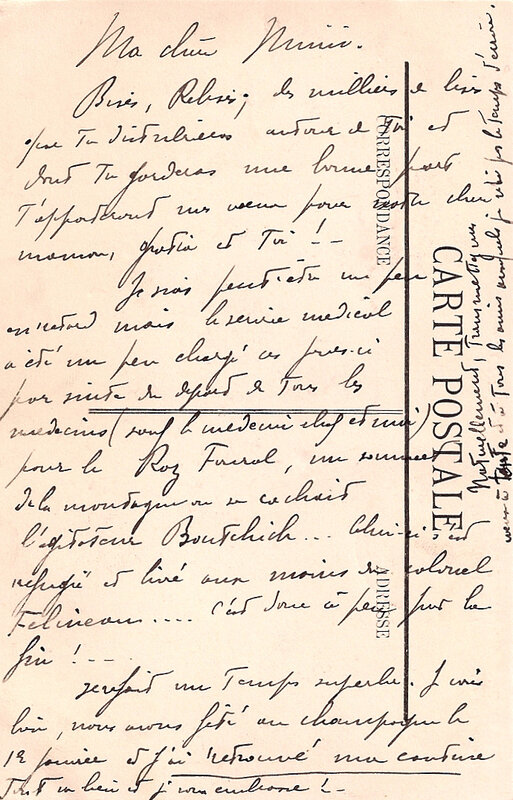 Ma chère Mimi.
Bises, Rebises, des milliers de bises
que tu distribueras autour de Toi et
dont tu garderas une bonne part
T'apporteront mes vœux pour notre chère
maman, et Toi !—
Je suis peut être un peu
en retard mais le service médical
a été un peu chargé ces jours-ci
par suite du départ de tous les
médecins (sauf le médecin chef et moi)
pour le Roz Fourol, un sommet
de la montagne ou se cachait
l'agitateur Boutchich... Celui-ci s'est
refugié et livré aux mains du colonel
Felineau.... c'est donc à peu près la
fin !----
Il fait un Temps superbe. Je vais
bien, nous avons fêté au champagne le
1er janvier et j'ai 'retrouvé' ma
Tout va bien et je vous embrasse !-
Naturellement, Transmettez mes
vœux à Tante et à Tous les amis auxquels je n'ai pas le temps d'écrire.
CORRESPONDANCE
CARTE POSTALE
ADRESSE